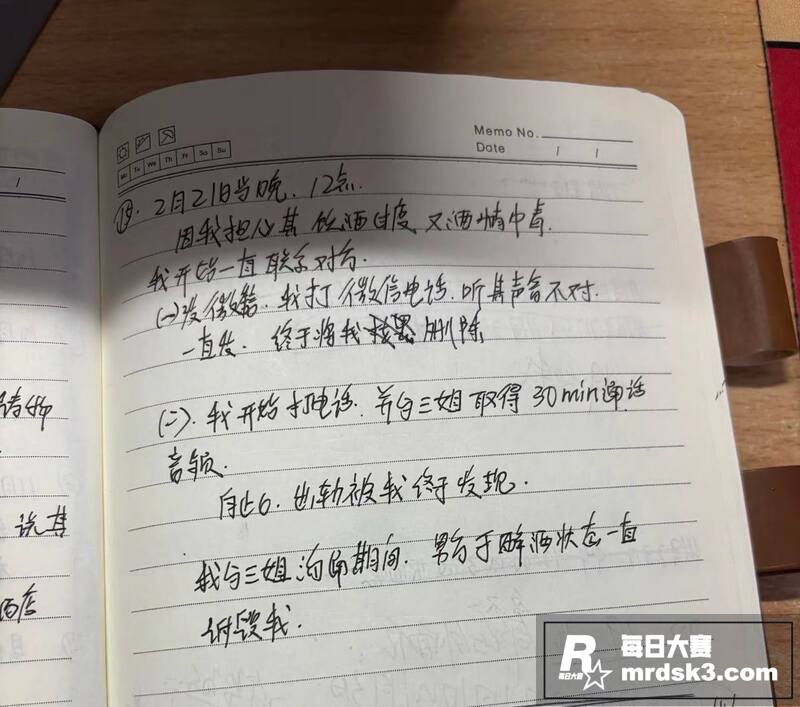 Memo No.
Date / /
Mo Tu We Th Fr Sa Su
⑲. 2月21日当晚. 12点.
因我担心其 饮酒过度 又酒精中毒.
我开始一直联系对方.
(一)发微信. 我打微信电话. 听其声音不对.
一直发. 终于将我 删除
(二). 我开始打电话. 并与三姐取得30min通话
音频.
自此6. 出轨被我终于发现.
我与三姐沟通期间. 男方于醉酒状态一直
诋毁我.
说其
酒店
每日大赛
mrdsk3.com
R
每日大赛